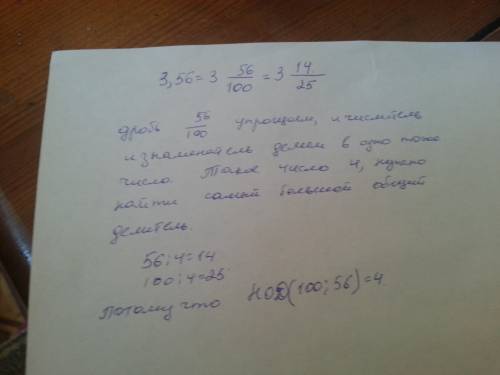 3,56 = 3 56/100 = 3 14/25
дробь 56/100 упрощаем, и числитель
и знаменатель делим в одно тоже
число. Такое число 4, нужно
найти самый большой общий
делитель.
56:4=14
100:4=25
Потому что НОД(100;56)=4